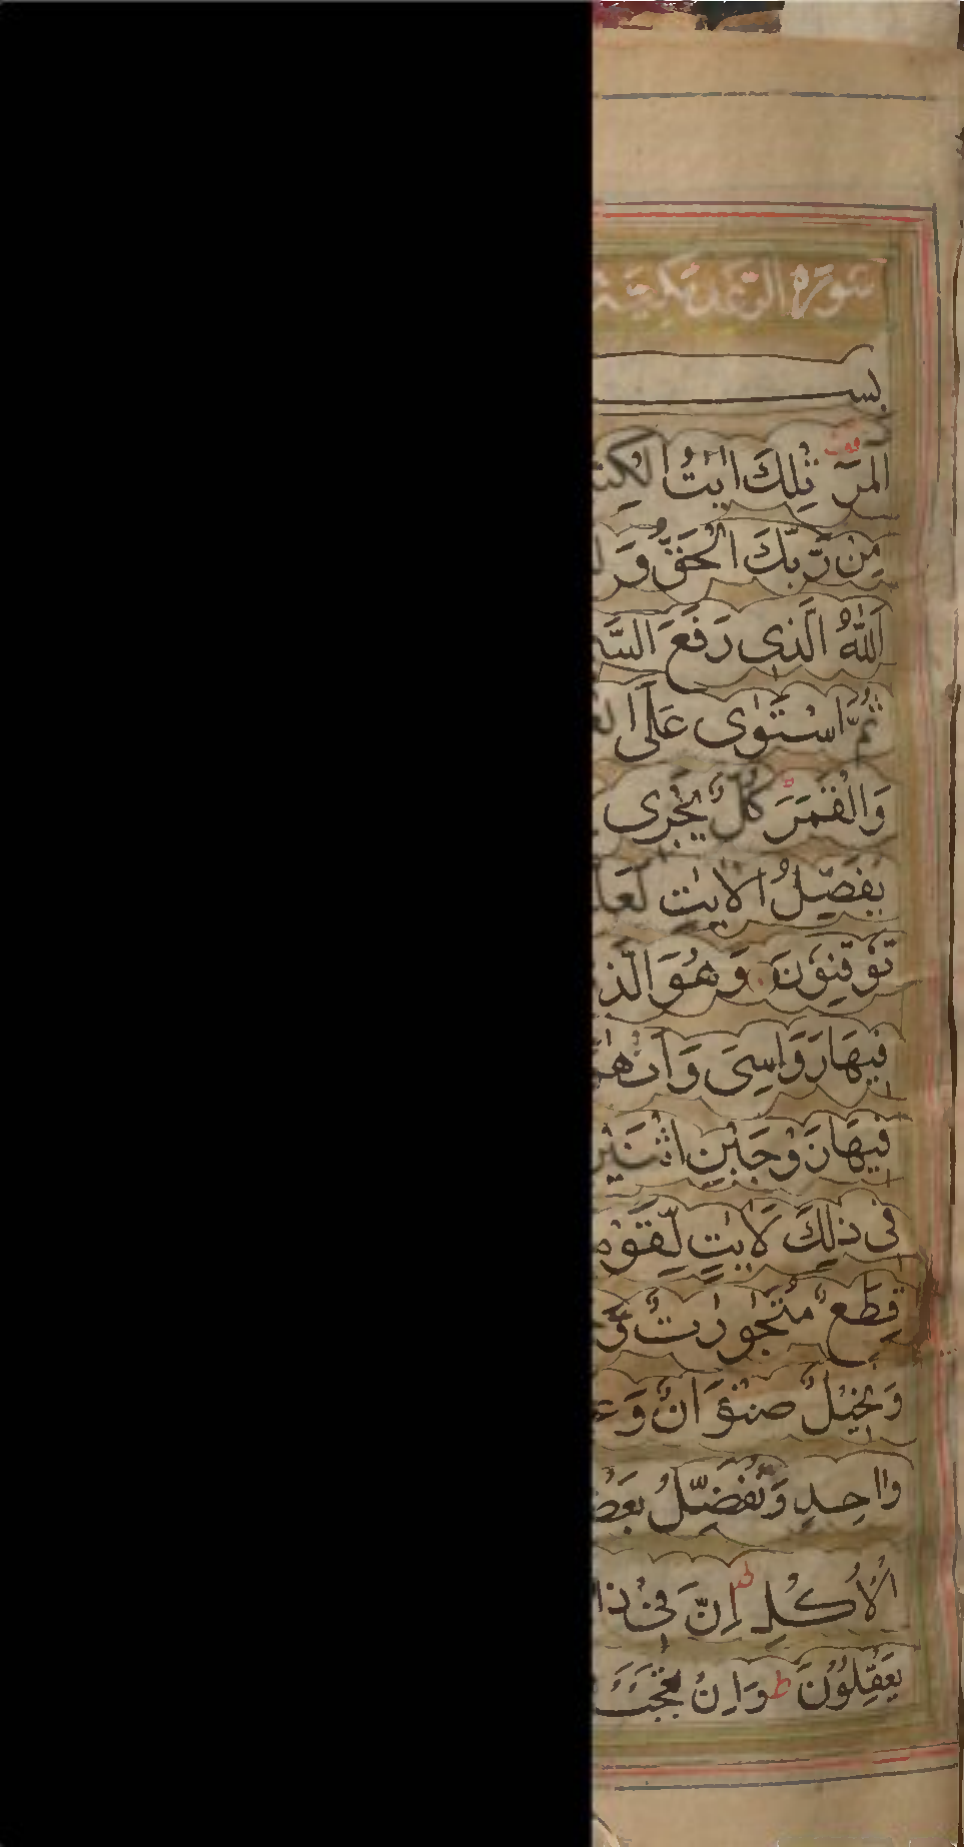 سورة الرعد مكية
بسـ
الٓمّرٰ تِلْكَ اٰيٰتُ الْكِتٰ
مِنْ رَّبِّكَ الْحَقُّ وَ
اَللّٰهُ الَّذِى رَفَعَ السَّمٰ
ثُمَّ اسْتَوٰى عَلَى الْعَ
وَالْقَمَرَ ط كُلٌّ يَّجْرِى
يُفَصِّلُ الْاٰيٰتِ لَعَلَّ
تُوْقِنُوْنَ وَهُوَ الَّذِ
فِيْهَا رَوَاسِىَ وَاَنْهٰ
فِيْهَا زَوْجَيْنِ اثْنَيْنِ
فِىْ ذٰلِكَ لَاٰيٰتٍ لِّقَوْمٍ
قِطَعٌ مُّتَجٰوِرٰتٌ وَّ
وَنَخِيْلٌ صِنْوَانٌ وَّغَ
وَّاحِدٍ وَنُفَضِّلُ بَعْضَ
الْاُكُلِ ط اِنَّ فِىْ ذٰا
يَعْقِلُوْنَ ط وَاِنْ تَعْجَبْ